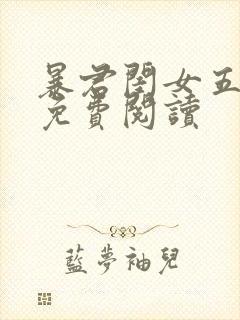 暴君閨女五
免費閱讀
藍夢袖兒